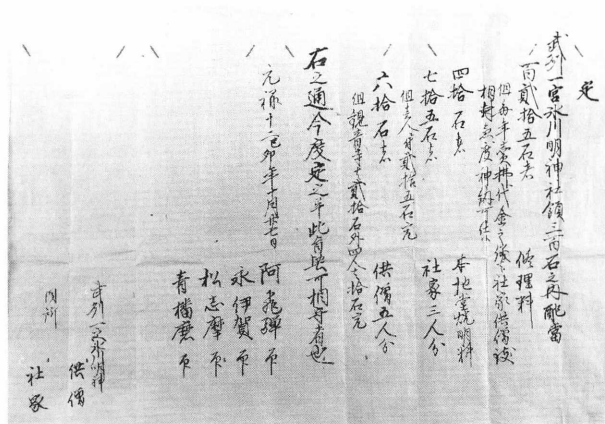 定
武州一宮氷川明神社領三百石之内配當
一百貳拾五石者 修理料
但毎年売拂代金之儀ハ社家供僧 相封急度神納可仕候
四拾石者 本地堂燈明料
七拾五石者 社家三人分
但壱人ニ付貳拾五石充
六拾石者 供僧五人分
但観音寺貳拾石外四人者拾石充
右之通今度定之畢此旨堅可相守者也
元禄十二己卯年十月廿七日
阿飛騨 印
永伊賀 印
松志摩 印
青播磨 印
武州一宮氷川明神
供僧
同所
社家